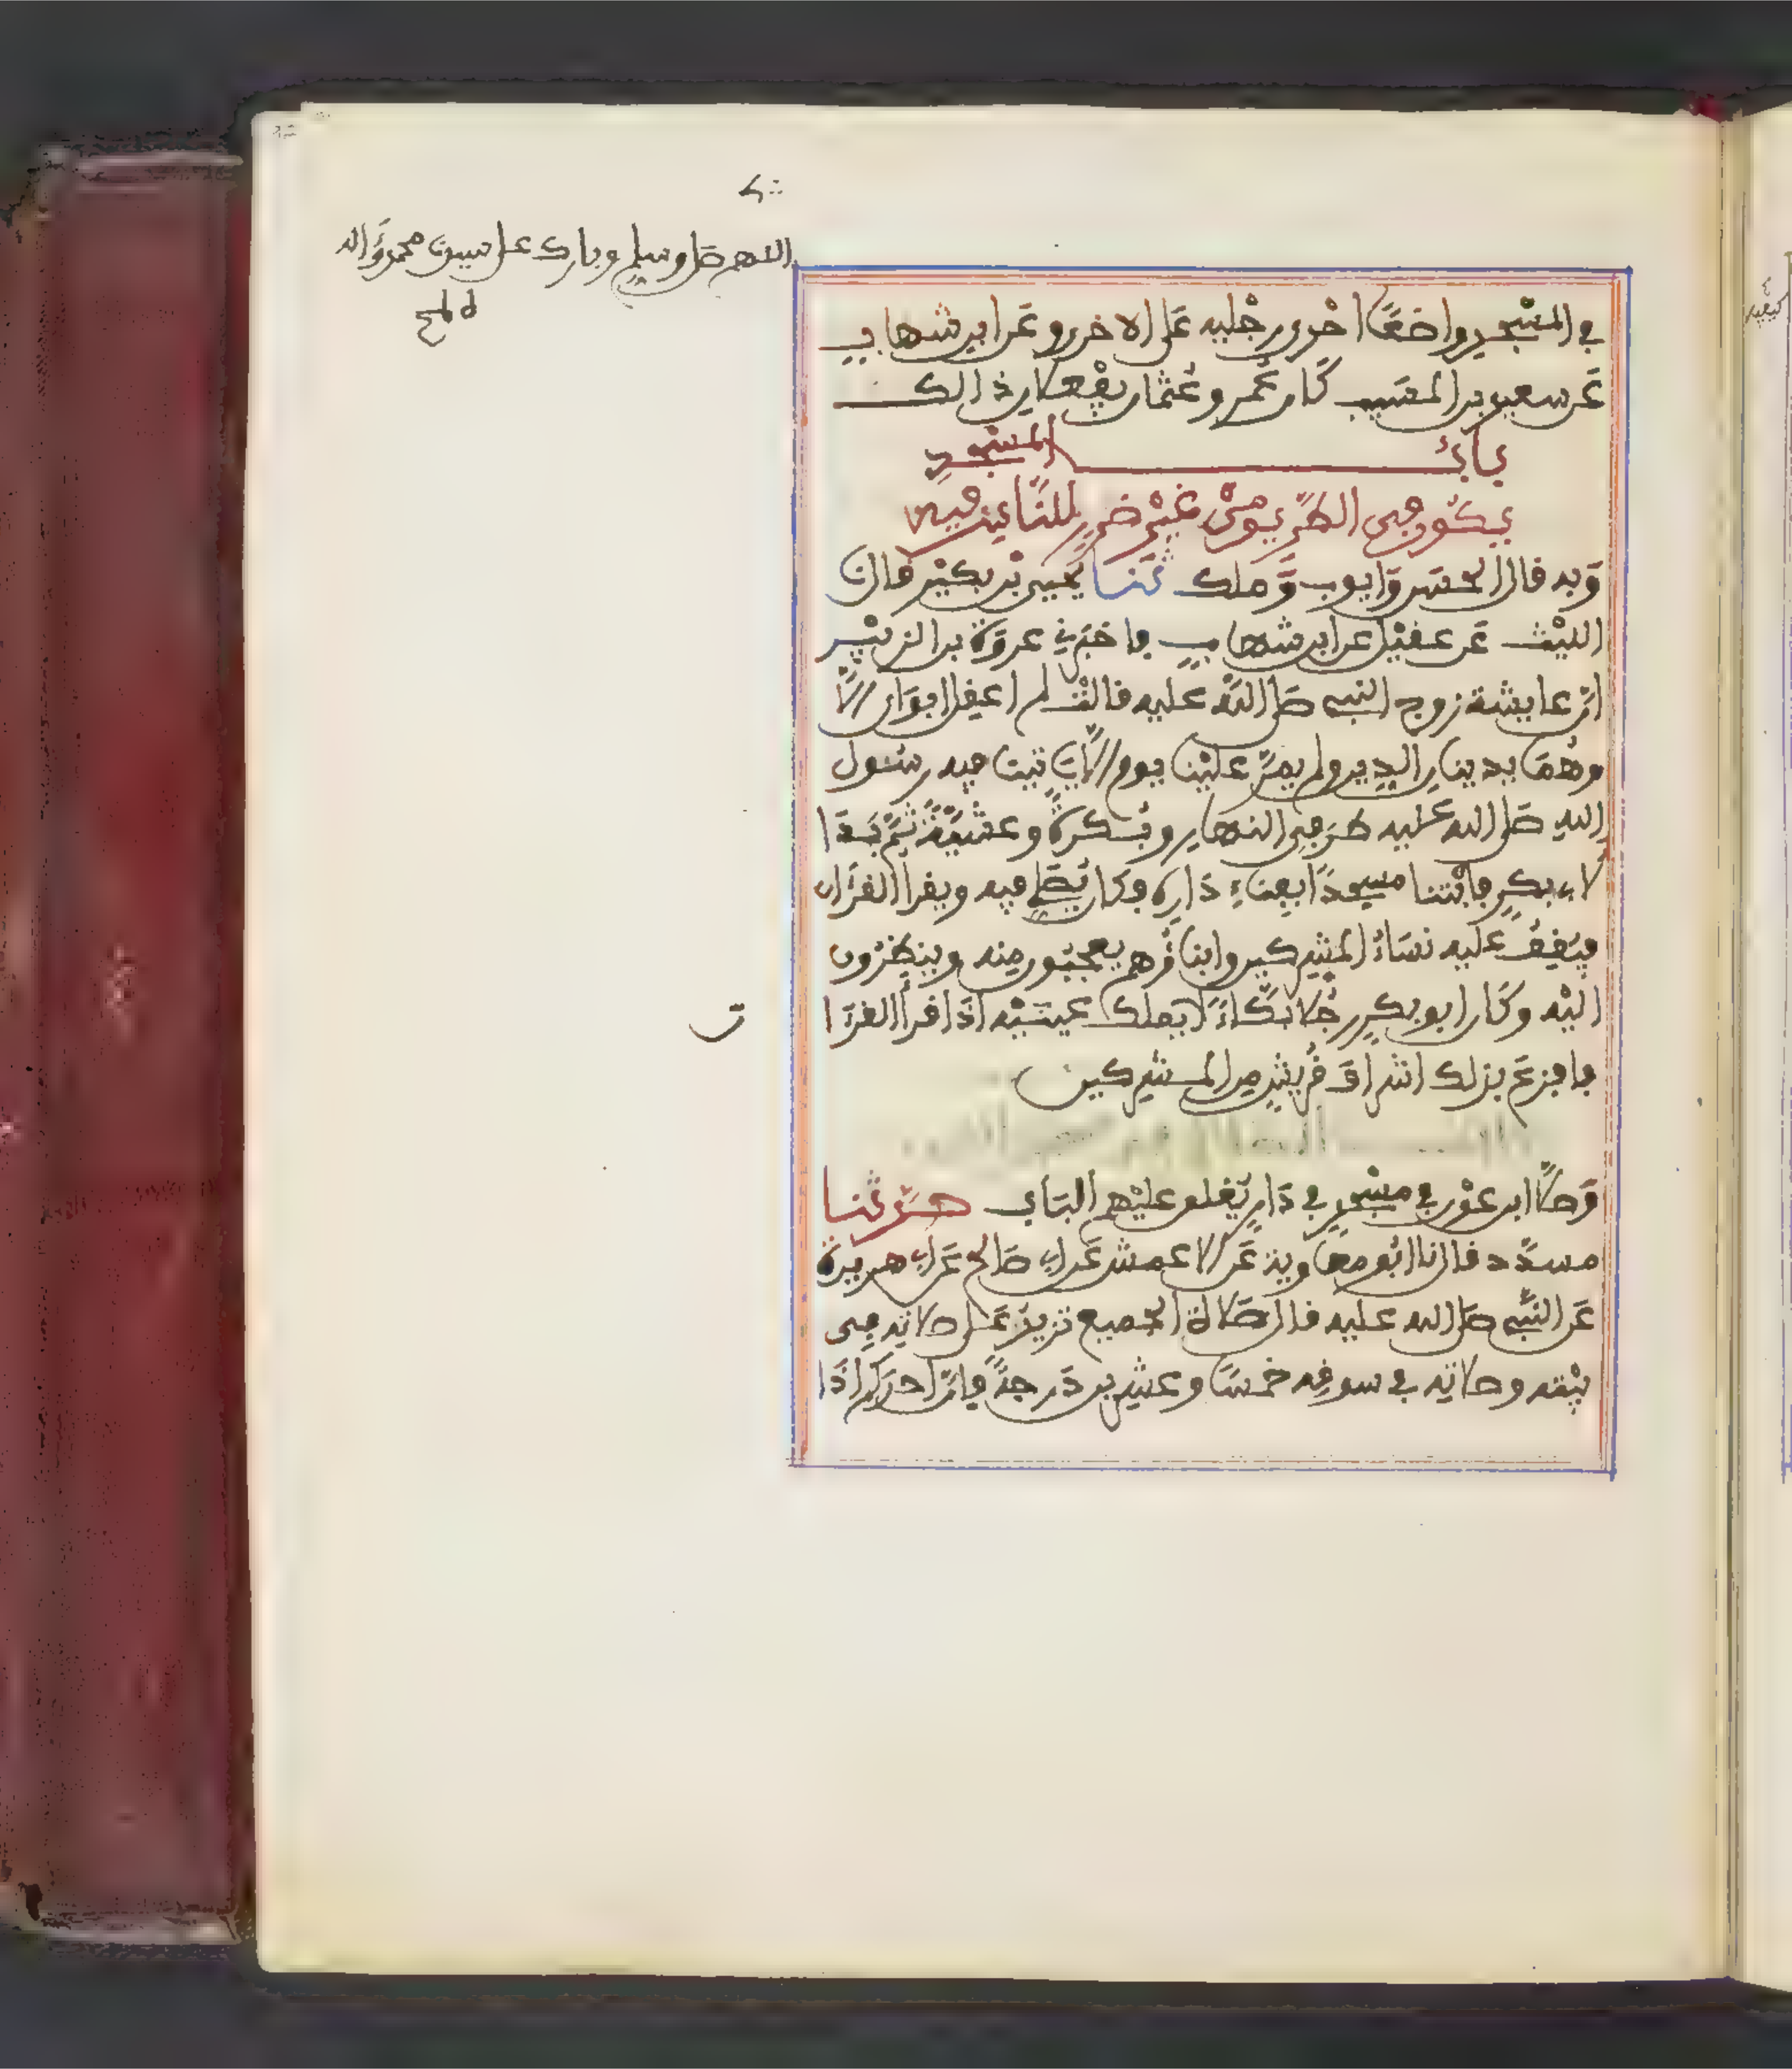 اللهم صل وسلم وبارك على سيدنا محمد وءاله
في المسجد واضعًا احدى رجليه على الاخرى وعن ابن شهاب
عن سعيد بن المسيب كان عمر وعثمان يفعلان ذالك
باب المسجد
يكون في الطريق من غير ضرر للناس فيه
وبه قال الحسن وايوب وملك ثنا يحيى بن بكير قال نا
الليث عن عقيل عن ابن شهاب فاخبرني عروة بن الزبير
ان عايشة زوج النبي صلى الله عليه قالت لم اعقل ابواي الا
وهما يدينان الدين ولم يمر علينا يوم الا ياتينا فيه رسول
الله صلى الله عليه طرفي النهار وبكرة وعشية ثم بدا
لابي بكر فابتنا مسجدًا بفناء داره فكان يصلي فيه ويقرأ القرءان
فيقف عليه نساء المشركين وابناؤهم يعجبون منه وينظرون
اليه وكان ابو بكر رجلا بكاءً لا يملك عينيه اذا قرأ القرءا
ن
فافزع ذلك اشراف قريش من المشركين
وصلى ابن عون في مسجد في دار يغلق عليهم الباب حدثنا
مسدد قال نا ابو معاوية عن الاعمش عن ابي صالح عن ابي هريرة
عن النبي صلى الله عليه قال صلاة الجميع تزيد على صلاته في
بيته وصلاته في سوقه خمسًا وعشرين درجةً فان احدكم اذا